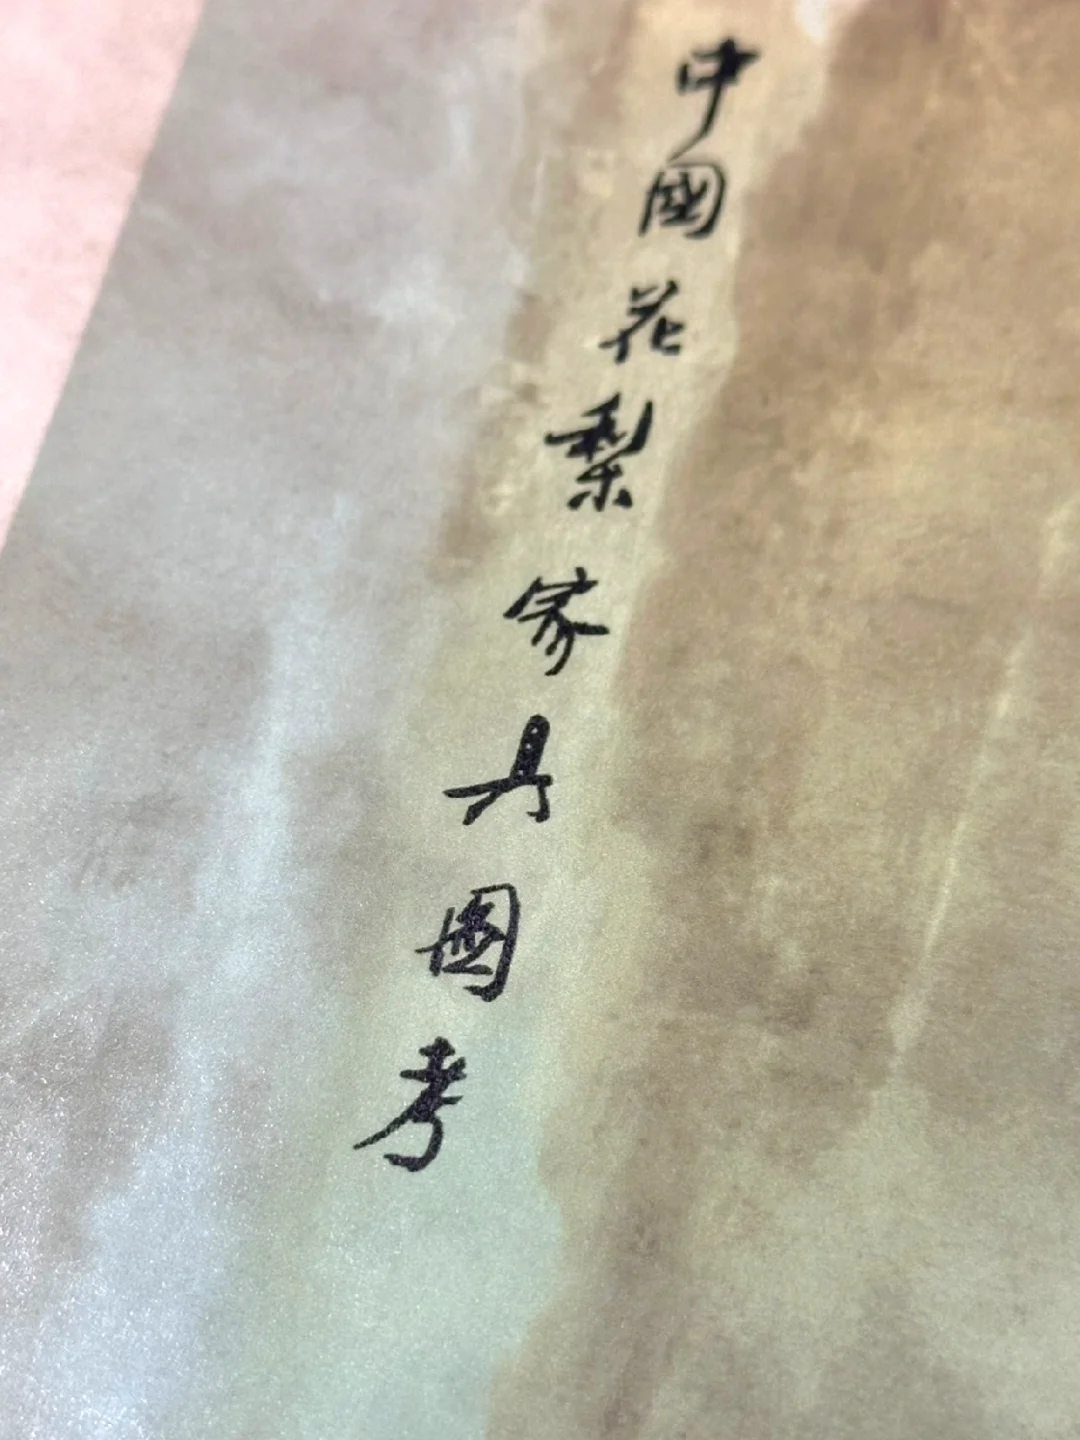 中國花梨家具圖考